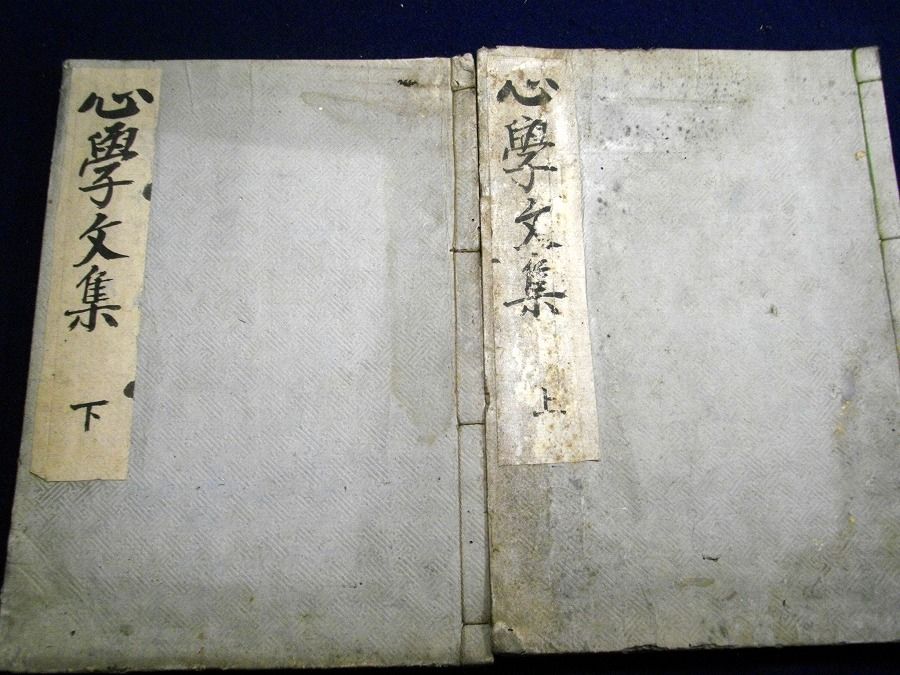 心學文集 上
心學文集 下